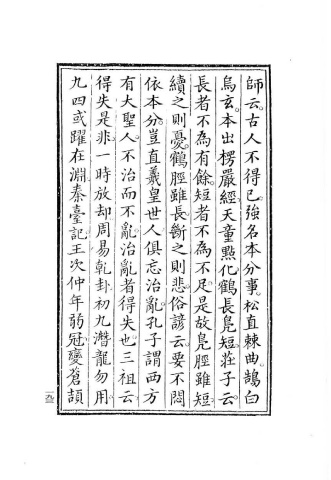 師云。古人不得已。強名本分事。松直棘曲。鵠白
烏玄。本出楞嚴經。天童點化鶴長鳧短。莊子云。
長者不為有餘。短者不為不足。是故鳧脛雖短。
續之則憂。鶴脛雖長。斷之則悲。俗諺云。要不悶
依本分。豈直羲皇世人俱忘治亂。孔子謂西方
有大聖人。不治而不亂。治亂者得失也。三祖云。
得失是非。一時放却。周易乾卦初九。潛龍勿用。
九四或躍在淵。秦臺記。王次仲年弱冠。變蒼頡